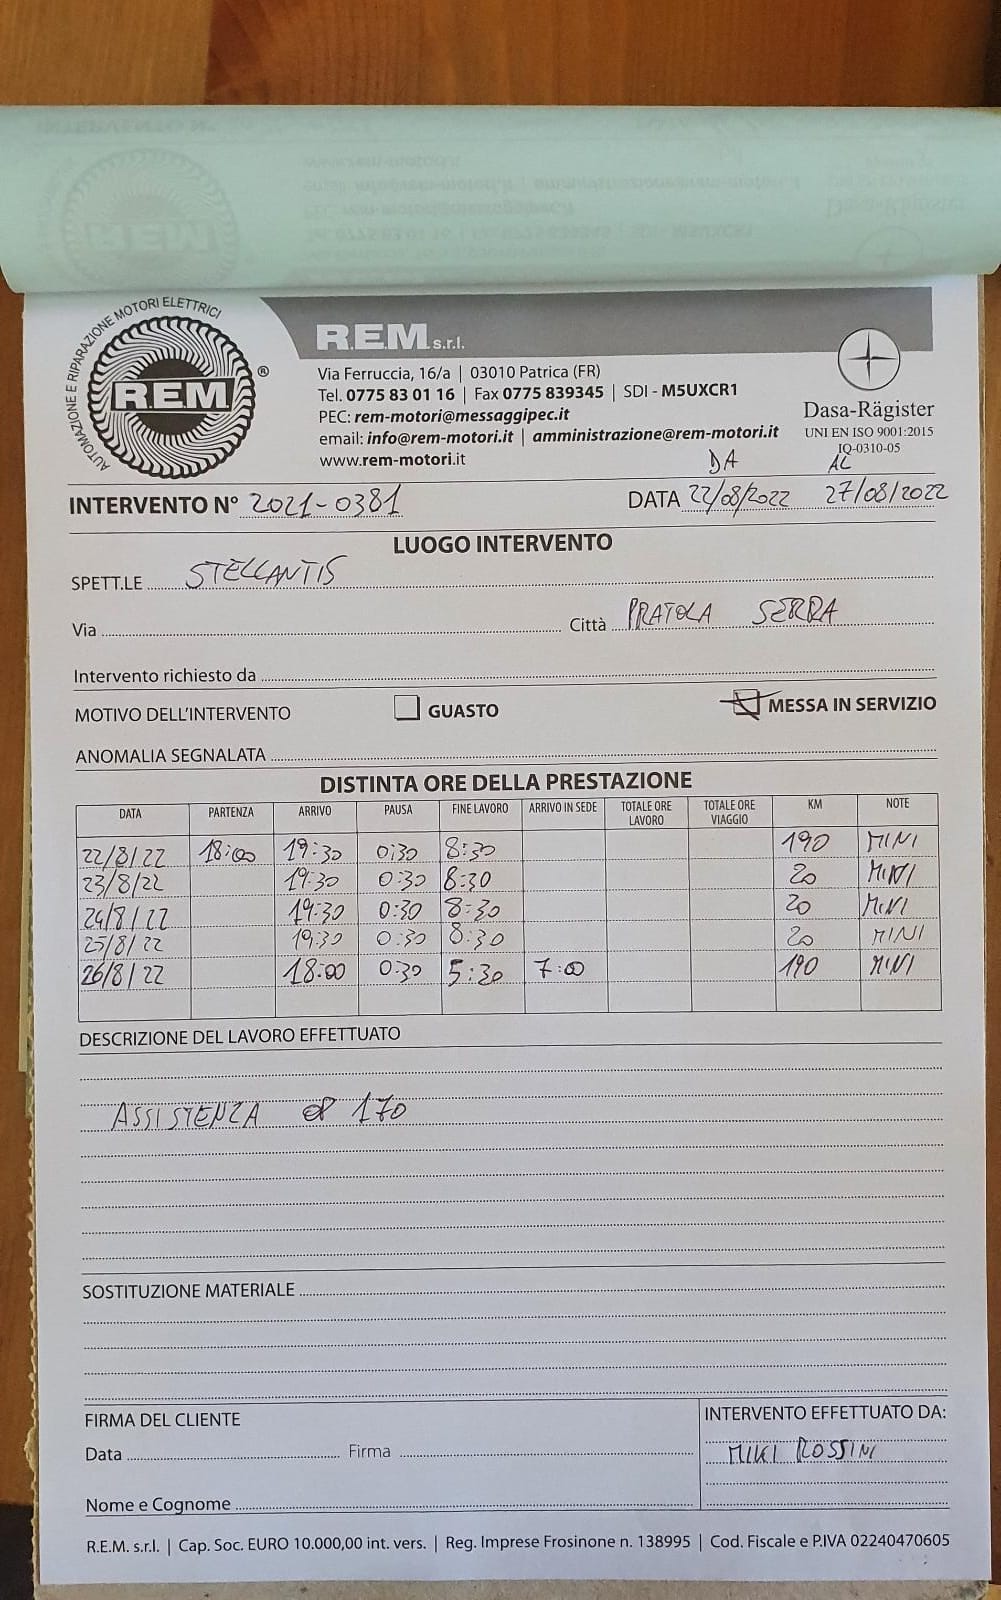 AUTOMAZIONE E RIPARAZIONE MOTORI ELETTRICI
REM ®
R.E.M. s.r.l.
Via Ferruccia, 16/a | 03010 Patrica (FR)
Tel. 0775 83 01 16 | Fax 0775 839345 | SDI - M5UXCR1
PEC: rem-motori@messaggipec.it
email: info@rem-motori.it | amministrazione@rem-motori.it
www.rem-motori.it
Dasa-Rägister
UNI EN ISO 9001:2015
IQ-0310-05
DA AL
INTERVENTO N° 2021-0381 DATA 22/08/2022 27/08/2022
LUOGO INTERVENTO
SPETT.LE STELLANTIS
Via Città PRATOLA SERRA
Intervento richiesto da
MOTIVO DELL'INTERVENTO GUASTO MESSA IN SERVIZIO
ANOMALIA SEGNALATA
DISTINTA ORE DELLA PRESTAZIONE
DATA PARTENZA ARRIVO PAUSA FINE LAVORO ARRIVO IN SEDE TOTALE ORE LAVORO TOTALE ORE VIAGGIO KM NOTE
22/8/22 18:00 19:30 0:30 8:30 190 MINI
23/8/22 19:30 0:30 8:30 20 MINI
24/8/22 19:30 0:30 8:30 20 MINI
25/8/22 19:30 0:30 8:30 20 MINI
26/8/22 18:00 0:30 5:30 7:00 190 MINI
DESCRIZIONE DEL LAVORO EFFETTUATO
ASSISTENZA OP 170
SOSTITUZIONE MATERIALE
FIRMA DEL CLIENTE
Data Firma
Nome e Cognome
INTERVENTO EFFETTUATO DA:
MIKI ROSSINI
R.E.M. s.r.l. | Cap. Soc. EURO 10.000,00 int. vers. | Reg. Imprese Frosinone n. 138995 | Cod. Fiscale e P.IVA 02240470605